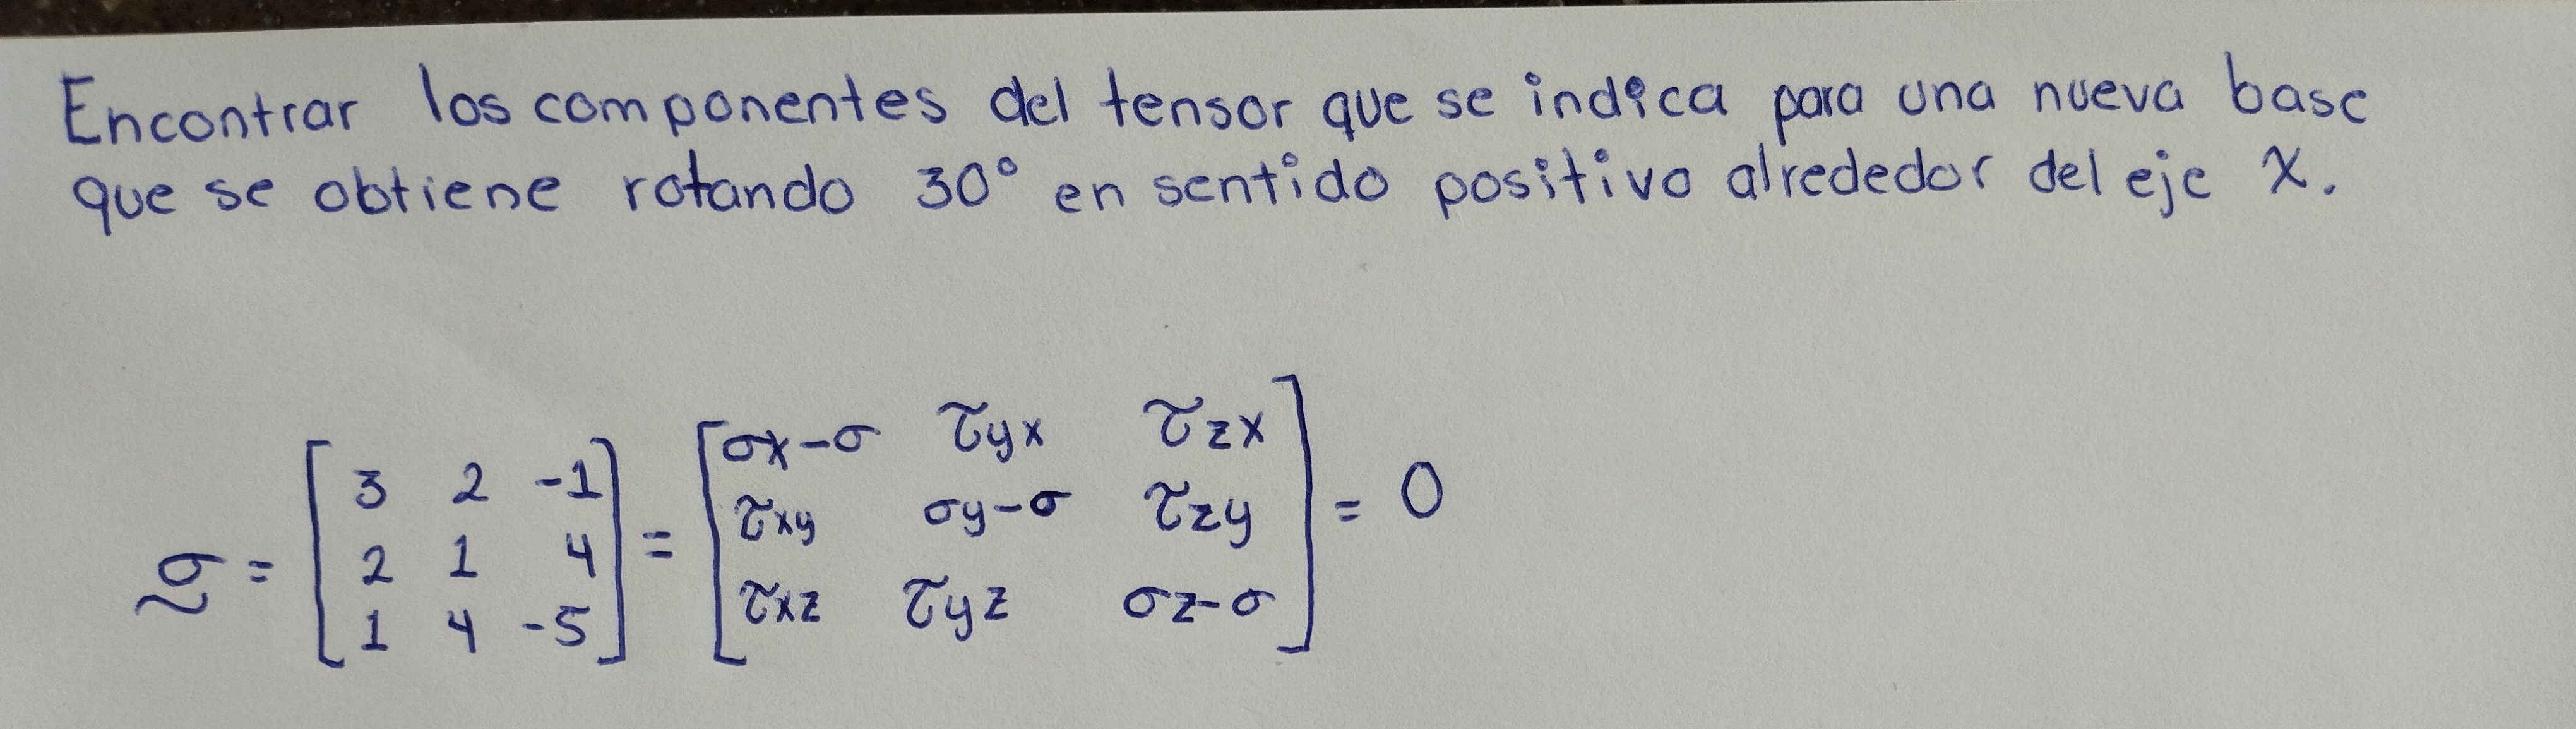 Encontrar los componentes del tensor que se indica para una nueva base
que se obtiene rotando 30° en sentido positivo alrededor del eje X.
σ̰ = [3 2 -1; 2 1 4; 1 4 -5] = [σx-σ τyx τzx; τxy σy-σ τzy; τxz τyz σz-σ] = 0